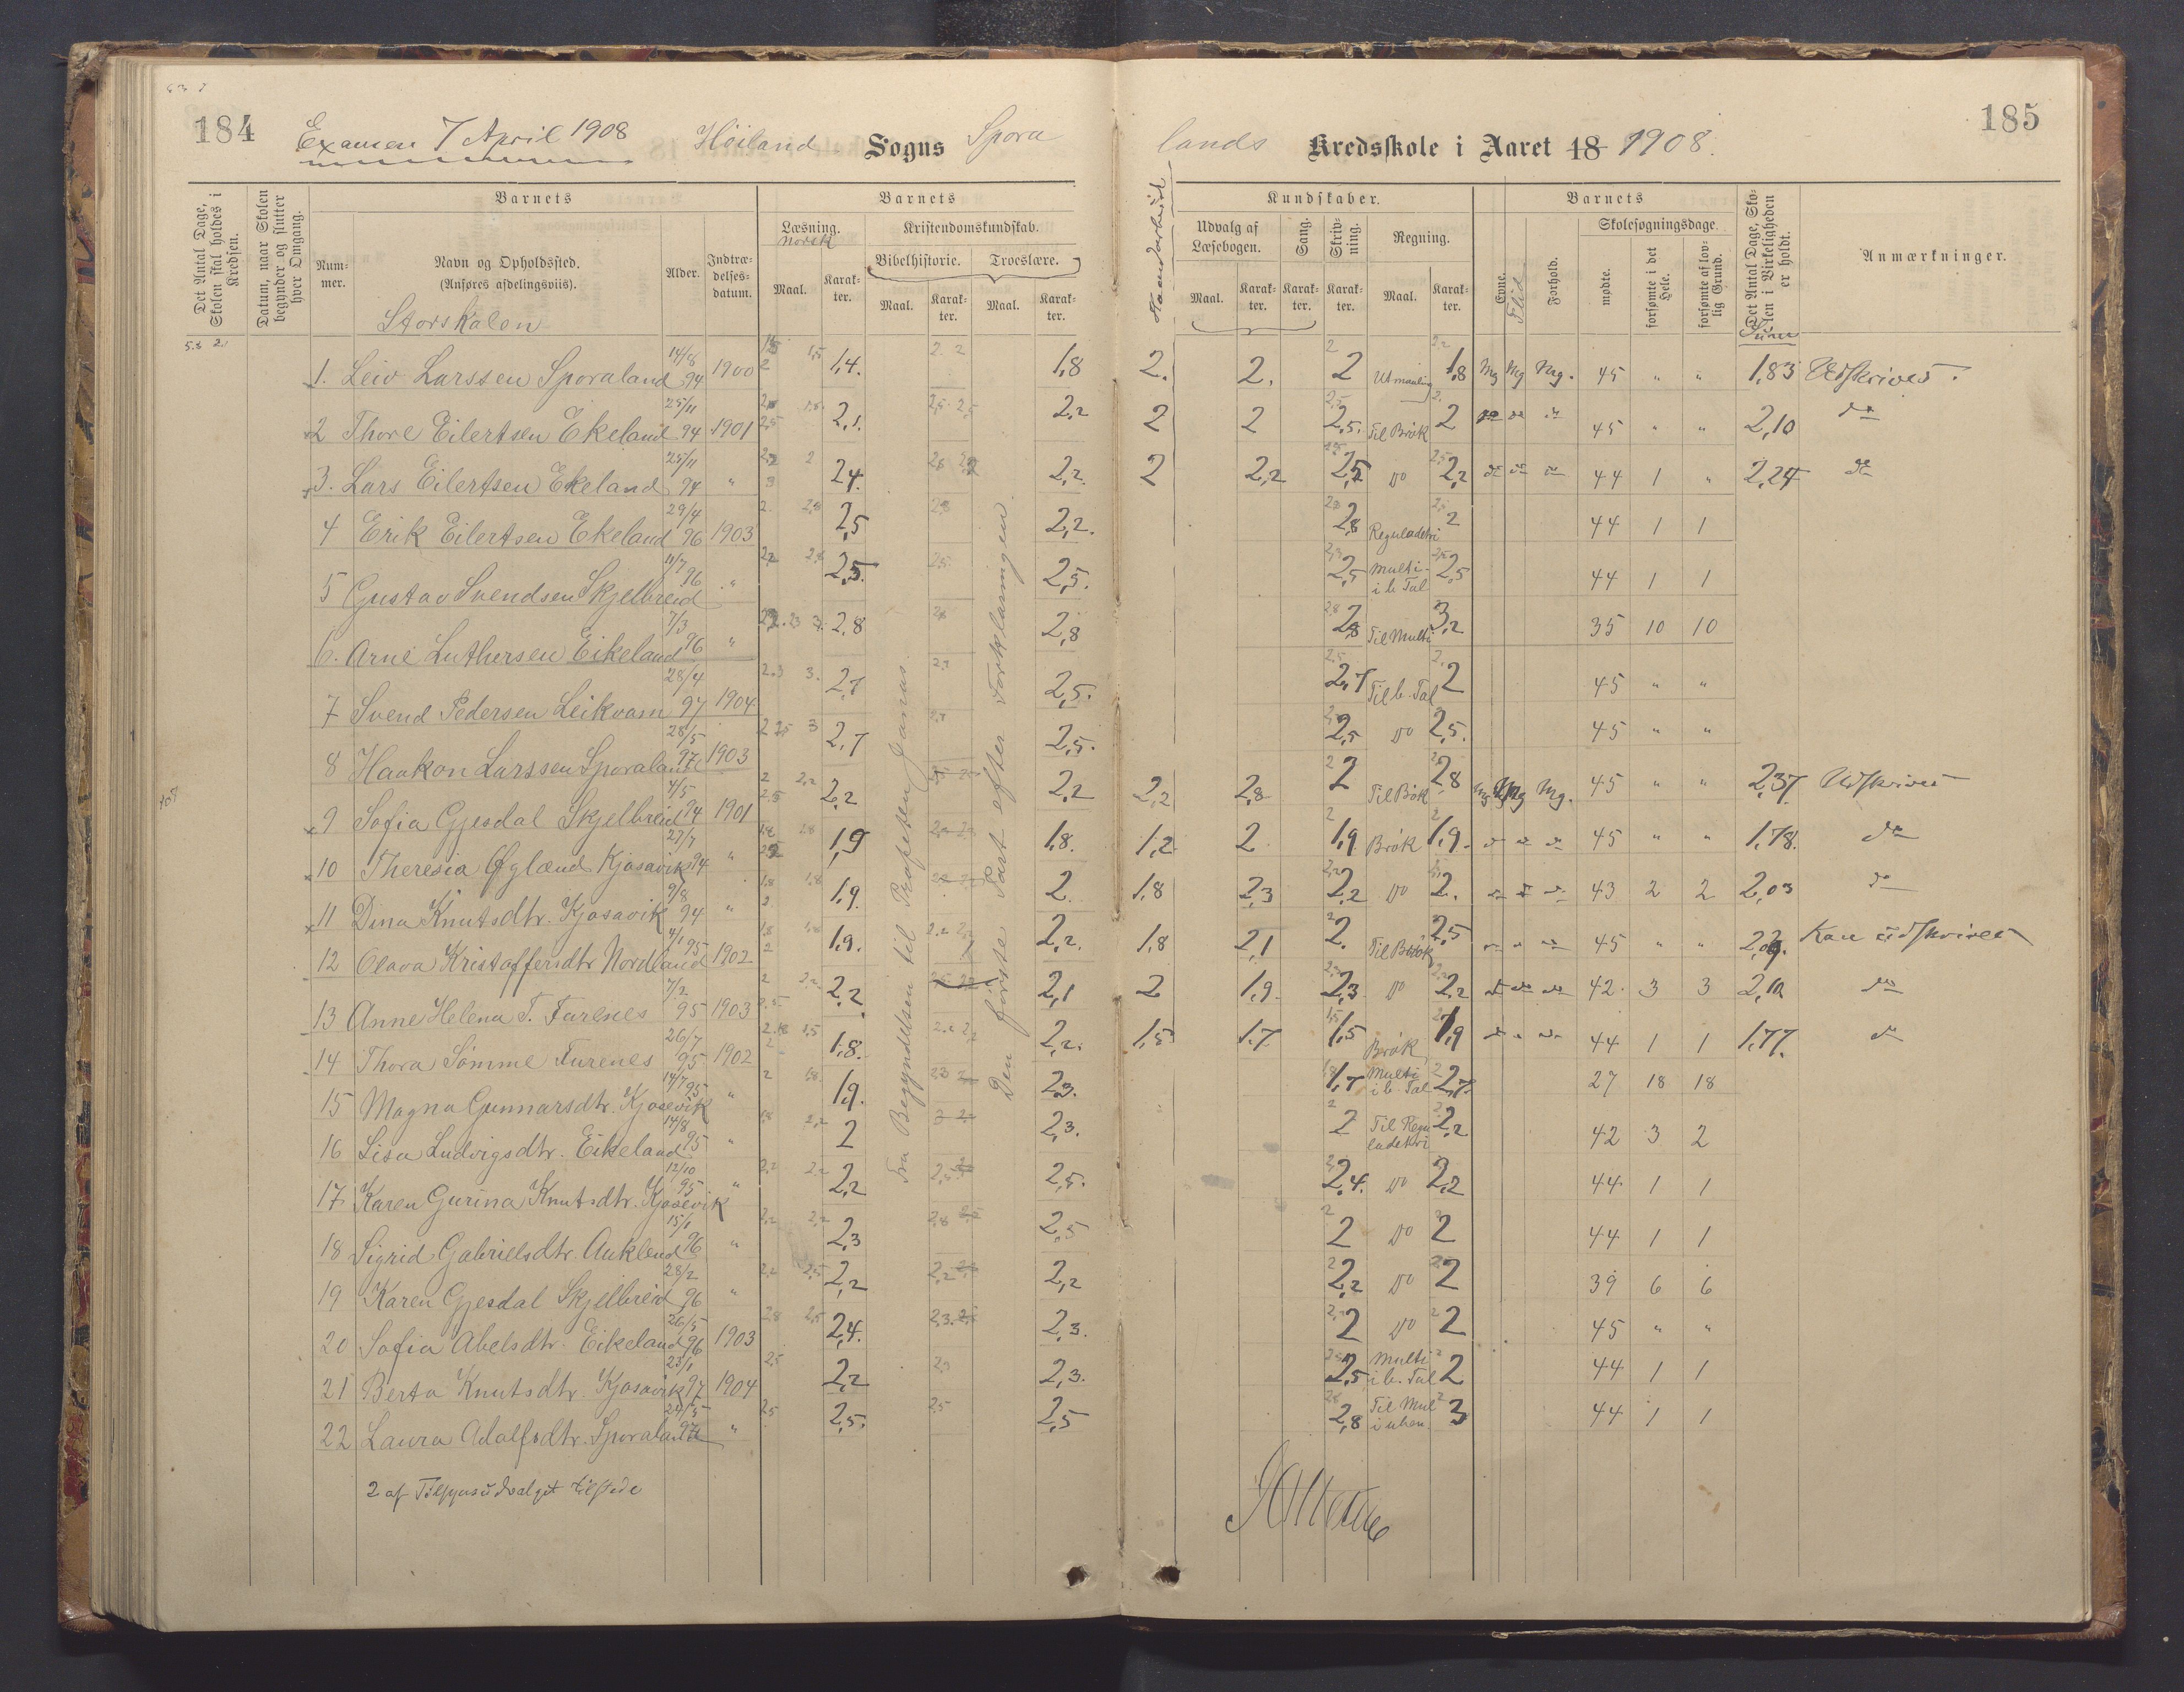 184
Examen 7 April 1908 Höiland Sogns Spora
lands Kredsskole i Aaret 18 1908.
185
Det Antal Dage, Skolen skal holdes i Kredsen.
Datum, naar Skolen begynder og slutter hver Omgang.
Barnets
Num-mer.
Navn og Opholdssted.
(Anføres afdelingsviis).
Storskolen
Alder.
Indtræ-delses-datum.
Barnets
Læsning.
norsk
Maal.
Karak-ter.
Kristendomskundskab.
Bibelhistorie.
Troeslære.
Maal.
Karak-ter.
Maal.
Karak-ter.
Haandarbeid
Kundskaber.
Udvalg af Læsebogen.
Maal.
Karak-ter.
Sang.
Karak-ter.
Skriv-ning.
Karak-ter.
Regning.
Maal.
Karak-ter.
Barnets
Evne.
Flid
Forhold.
Skolesøgningsdage.
mødte.
forsømte i det Hele.
forsømte af lov-lig Grund.
Det Antal Dage, Sko-len i Virkeligheden er holdt.
Sum
Anmærkninger.
1. Leiv Larssen Sporaland 14/8 94 1900 1,4. 1,8 2. 2. 2 Utmaaling 1,8 Mg Mg Mg. 45 " " 1,83 Udskrives.
2 Thore Eilertsen Ekeland 25/11 94 1901 2,1. 2,2 2 2 2,5. Til Brök 2 do do do 45 " " 2,10 do
3. Lars Eilertsen Ekeland 25/11 94 " 2,4. 2,2. 2 2,2 2,5 Do 2,2 do do do 44 1 " 2,24 do
4 Erik Eilertsen Ekeland 29/4 96 1903 2,5 2,2. 2,8 Reguladetri 2 44 1 1
5 Gustav Svendsen Skjelbreid 11/7 96 " 2,5. 2,5. 2,5 Multi- i b. Tal 2,5 44 1 1
6. Arne Luthersen Eikeland 7/3 96 " 2,8 2,8 2,8 Til Multi 3,2 35 10 10
7 Svend Pedersen Leikvam 28/4 97 1904 2,7 2,5. 2,7 Til b. Tal 2 45 " "
8 Haakon Larssen Sporaland 28/5 97 1903 2,7 2,5. 2,5 Do 2,5. 45 " "
9 Sofia Gjesdal Skjelbreid 4/5 94 1901 2,2 2,2 2,2 2,8 2 Til Brök 2,8 Mg Mg Mg. 45 " " 2,37. Udskrives
10 Theresia Øglænd Kjosavik 27/7 94 " 1,9 1,8. 1,2 2 1,9 Brök 1,9. do do do 45 " " 1,78. do
11 Dina Knutsdtr. Kjosavik 9/8 94 " 1,9. 2. 1,8 2,3 2,2 Do 2. do do do 43 2 2 2,03 do
12 Olava Kristoffersdtr Nordland 4/1 95 1902 1,9. 2,2. 1,8 2,1 2. Til Brök 2,5 45 " " Kan udskrives
13 Anne Helena T. Furenes 7/2 95 1903 2,2 2,1 2 1,9. 2,3 Do 2,2 do do do 42. 3 3 2,10 do
14 Thora Sömme Furenes 26/7 95 1902 1,8. 2,2. 1,5 1,7 1,5 Brök 1,9 44 1 1 1,77. do
15 Magna Gunnarsdtr. Kjosevik 14/7 95 " 1,9. 2,3. 1,7 Multi i b. Tal 2,7. 27 18 18
16 Lisa Ludvigsdtr. Eikeland 14/8 95 " 2 2,3. 2 Til Regu ladetri 2,2 42 3 2
17 Karen Gurina Knutsdtr. Kjosevik 12/10 95 " 2,2 2,5. 2,4. Do 2,2 44 1 1
18 Sigrid Gabrielsdtr. Auklend 15/1 96 " 2,3 2,5 2 Do 2 44 1 1
19 Karen Gjesdal Skjelbreid 28/2 96 " 2,2 2,2 2,2 Do 2 39 6 6
20 Sofia Abelsdtr. Eikeland 26/5 96 1903 2,4. 2,3. 2 Do 2 45 " "
21 Berta Knutsdtr. Kjosavik 23/1 97 1904 2,2 2,3. 2,5 Multi i b. Tal 2 44 1 1
22 Laura Adolfsdtr. Sporaland 97 " 2,5. 2,5 2,8 Til Mul i uben. 3 44 1 1
Fra Begyndelsen til Profeten Jonas.
Den første Part efter Forklaringen.
2 af Tilsynsudvalget tilstede